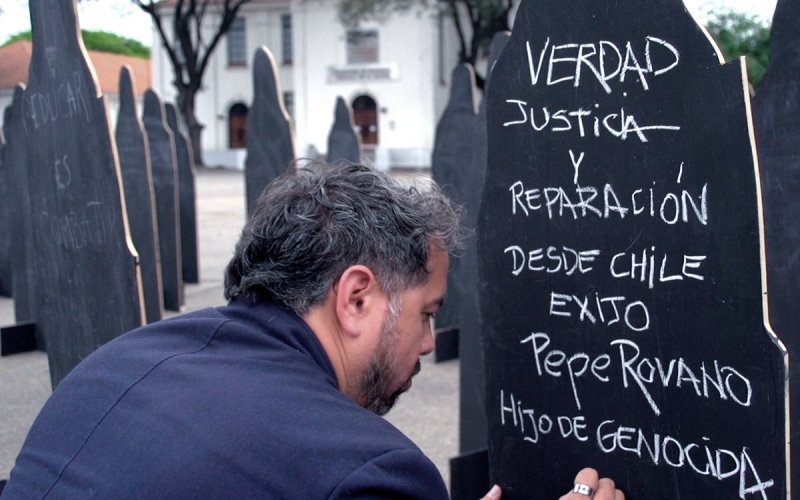 VERDAD
JUSTICIA
Y
REPARACIÓN
DESDE CHILE
EXIJO
PEPE ROVANO
HIJO DE GENOCIDA
EDUCAR
ES
COMBATIR